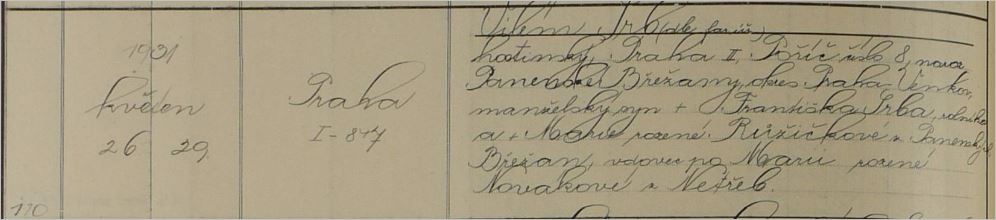 1931
květen
26 29.
Praha
I-847
110
Vilém Trb (dle far. úř.)
hostinský, Praha II, Poříč číslo 8, naroz.
Panenské Břežany, okres Praha-Venkov,
manželský syn + Františka Trba, rolníka
a + Marie rozené Růžičkové z Panenských
Břežan, vdovec po Marii rozené
Novákové z Netřeb.